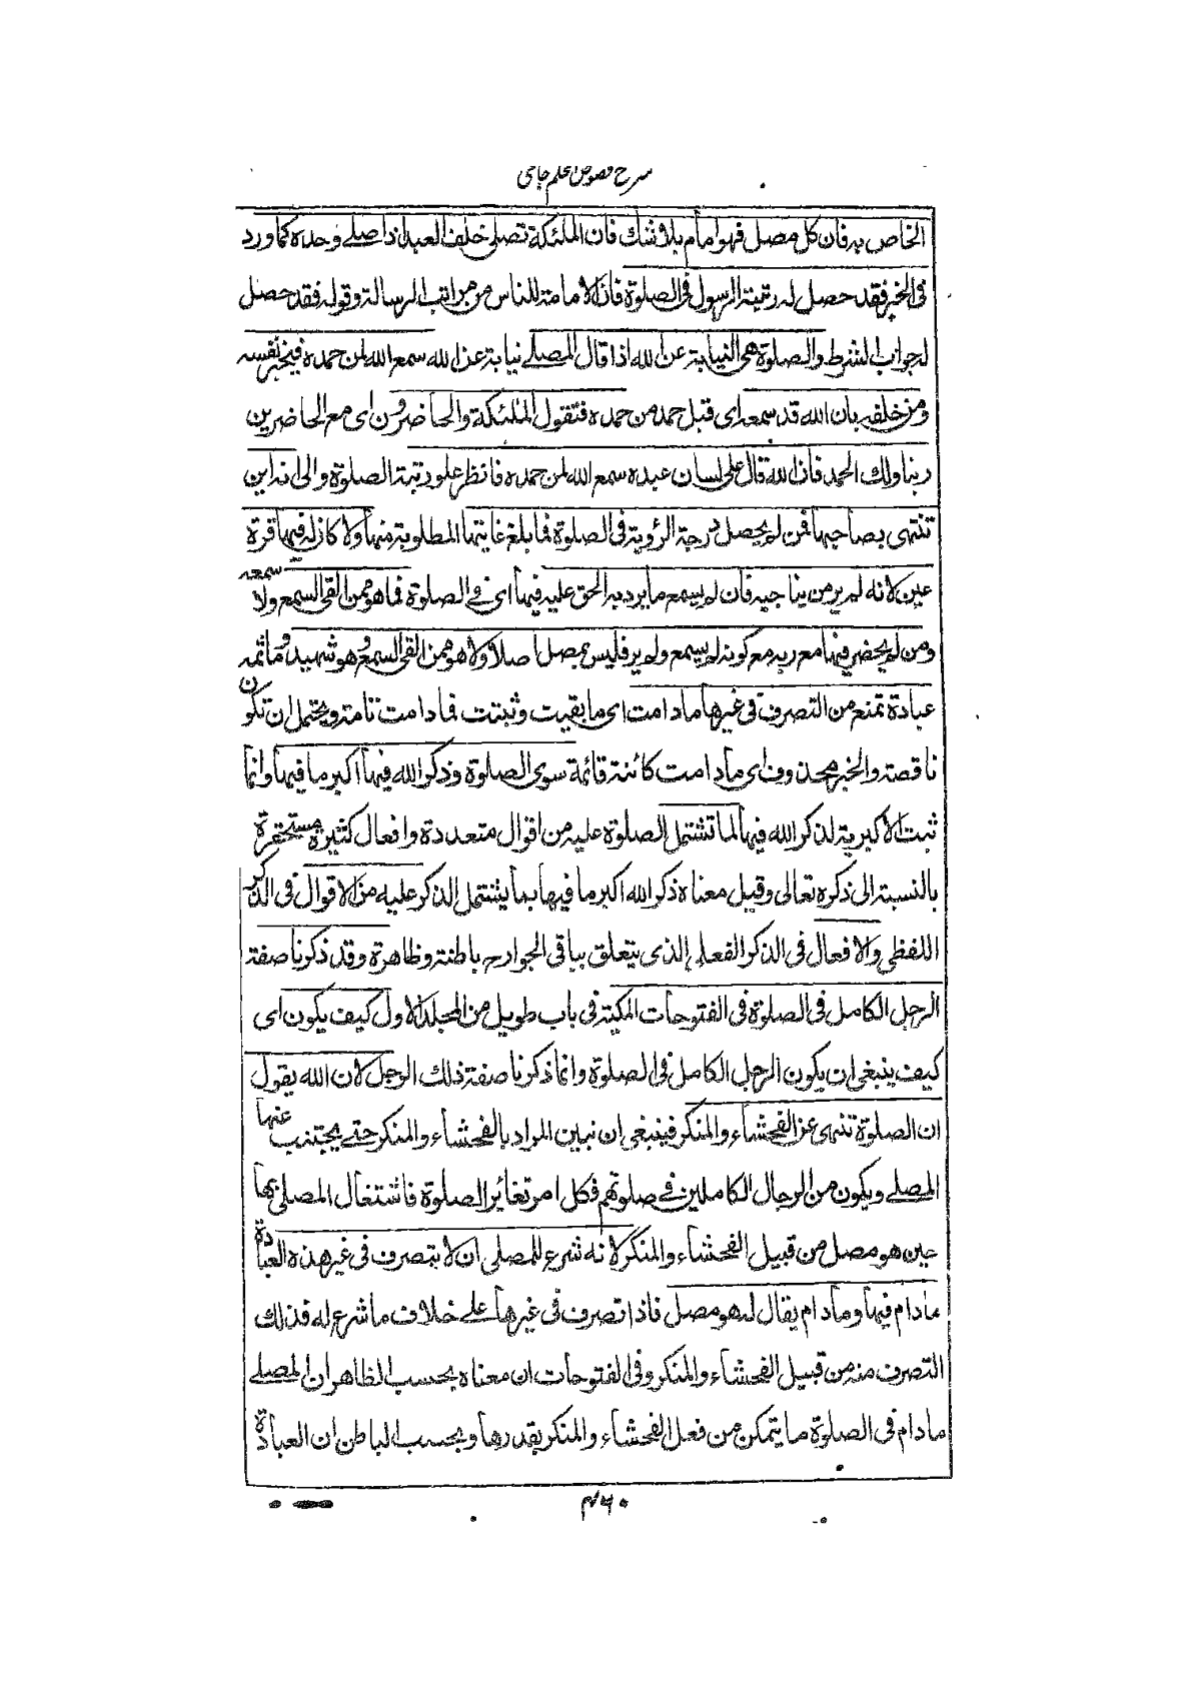 شرح فصوص الحكم جامى
الخاص به فان كل مصل فهو امام بلا شك فان الملئكة تصلى خلف العبد اذا صلى وحده كما ورد
فى الخبر فقد حصل له رتبة الرسول فى الصلوة فان الامامة للناس من مراتب الرسالة وقوله فقد حصل
له جواب الشرط والصلوة هى النيابة عن الله اذا قال المصلى نيابة عن الله سمع الله لمن حمده فيخبر نفسه
ومن خلفه بان الله قد سمعه اى قبل حمد من حمده فتقول الملئكة والحاضرون اى مع الحاضرين
ربنا ولك الحمد فان الله قال على لسان عبده سمع الله لمن حمده فانظر علو رتبة الصلوة والى انه اين
تنتهى بصاحبها فمن لم يحصل درجة الرؤية فى الصلوة فما بلغ غايتها المطلوبة منها ولا كان له فيها قرة
عين لانه لم ير من يناجيه فان لم يسمع ما يرد به الحق عليه فيها اى فى الصلوة فما هو ممن القى السمع ولا سمعه
ومن لم يحضر فيها مع ربه مع كونه لم يسمع ولم ير فليس بمصل اصلا ولا هو ممن القى السمع وهو شهيد وما ثمه
عبادة تمنع من التصرف فى غيرها ما دامت اى ما بقيت وثبتت فما دامت تامة ويحتمل ان تكون
ناقصة والخبر محذوف اى ما دامت كائنة قائمة سوى الصلوة وذكر الله فيها اكبر ما فيها وانما
ثبت الاكبرية لذكر الله فيها لما تشتمل الصلوة عليه من اقوال متعددة وافعال كثيرة مستحقرة
بالنسبة الى ذكره تعالى وقيل معناه ذكر الله اكبر ما فيها بما يشتمل الذكر عليه من الاقوال فى الذكر
اللفظى والافعال فى الذكر الفعلى الذى يتعلق بباقى الجوارح باطنة وظاهرة وقد ذكرنا صفة
الرجل الكامل فى الصلوة فى الفتوحات المكية فى باب طويل من المجلد الاول كيف يكون اى
كيف ينبغى ان يكون الرجل الكامل فى الصلوة وانما ذكرنا صفة ذلك الرجل لان الله يقول
ان الصلوة تنهى عن الفحشاء والمنكر فينبغى ان نبين المراد بالفحشاء والمنكر حتى يجتنب عنها
المصلى ويكون من الرجال الكاملين فى صلوتهم فكل امر تغائر الصلوة فاشتغال المصلى بها
حين هو مصل من قبيل الفحشاء والمنكر لانه شرع للمصلى ان لا يتصرف فى غير هذه العبادة
ما دام فيها وما دام يقال له هو مصل فاذا تصرف فى غيرها على خلاف ما شرع له فذلك
التصرف منه من قبيل الفحشاء والمنكر وفى الفتوحات ان معناه بحسب الظاهر ان المصلى
ما دام فى الصلوة ما يتمكن من فعل الفحشاء والمنكر بقدرها وبحسب الباطن ان العبادة